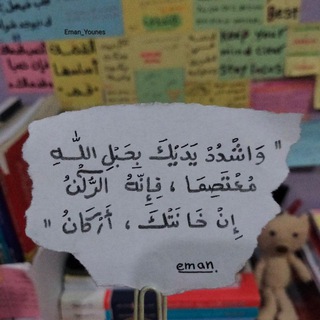 Eman_Younes
Best
keep your
mind clear
stay focus
" وَاشْدُدْ يَدَيْكَ بِحَبْلِ اللهِ
مُعْتَصِمَا ، فَإِنَّهُ الرُّكْنُ
إِنْ خَانَتْكَ ، أَرْكَانُ "
eman.